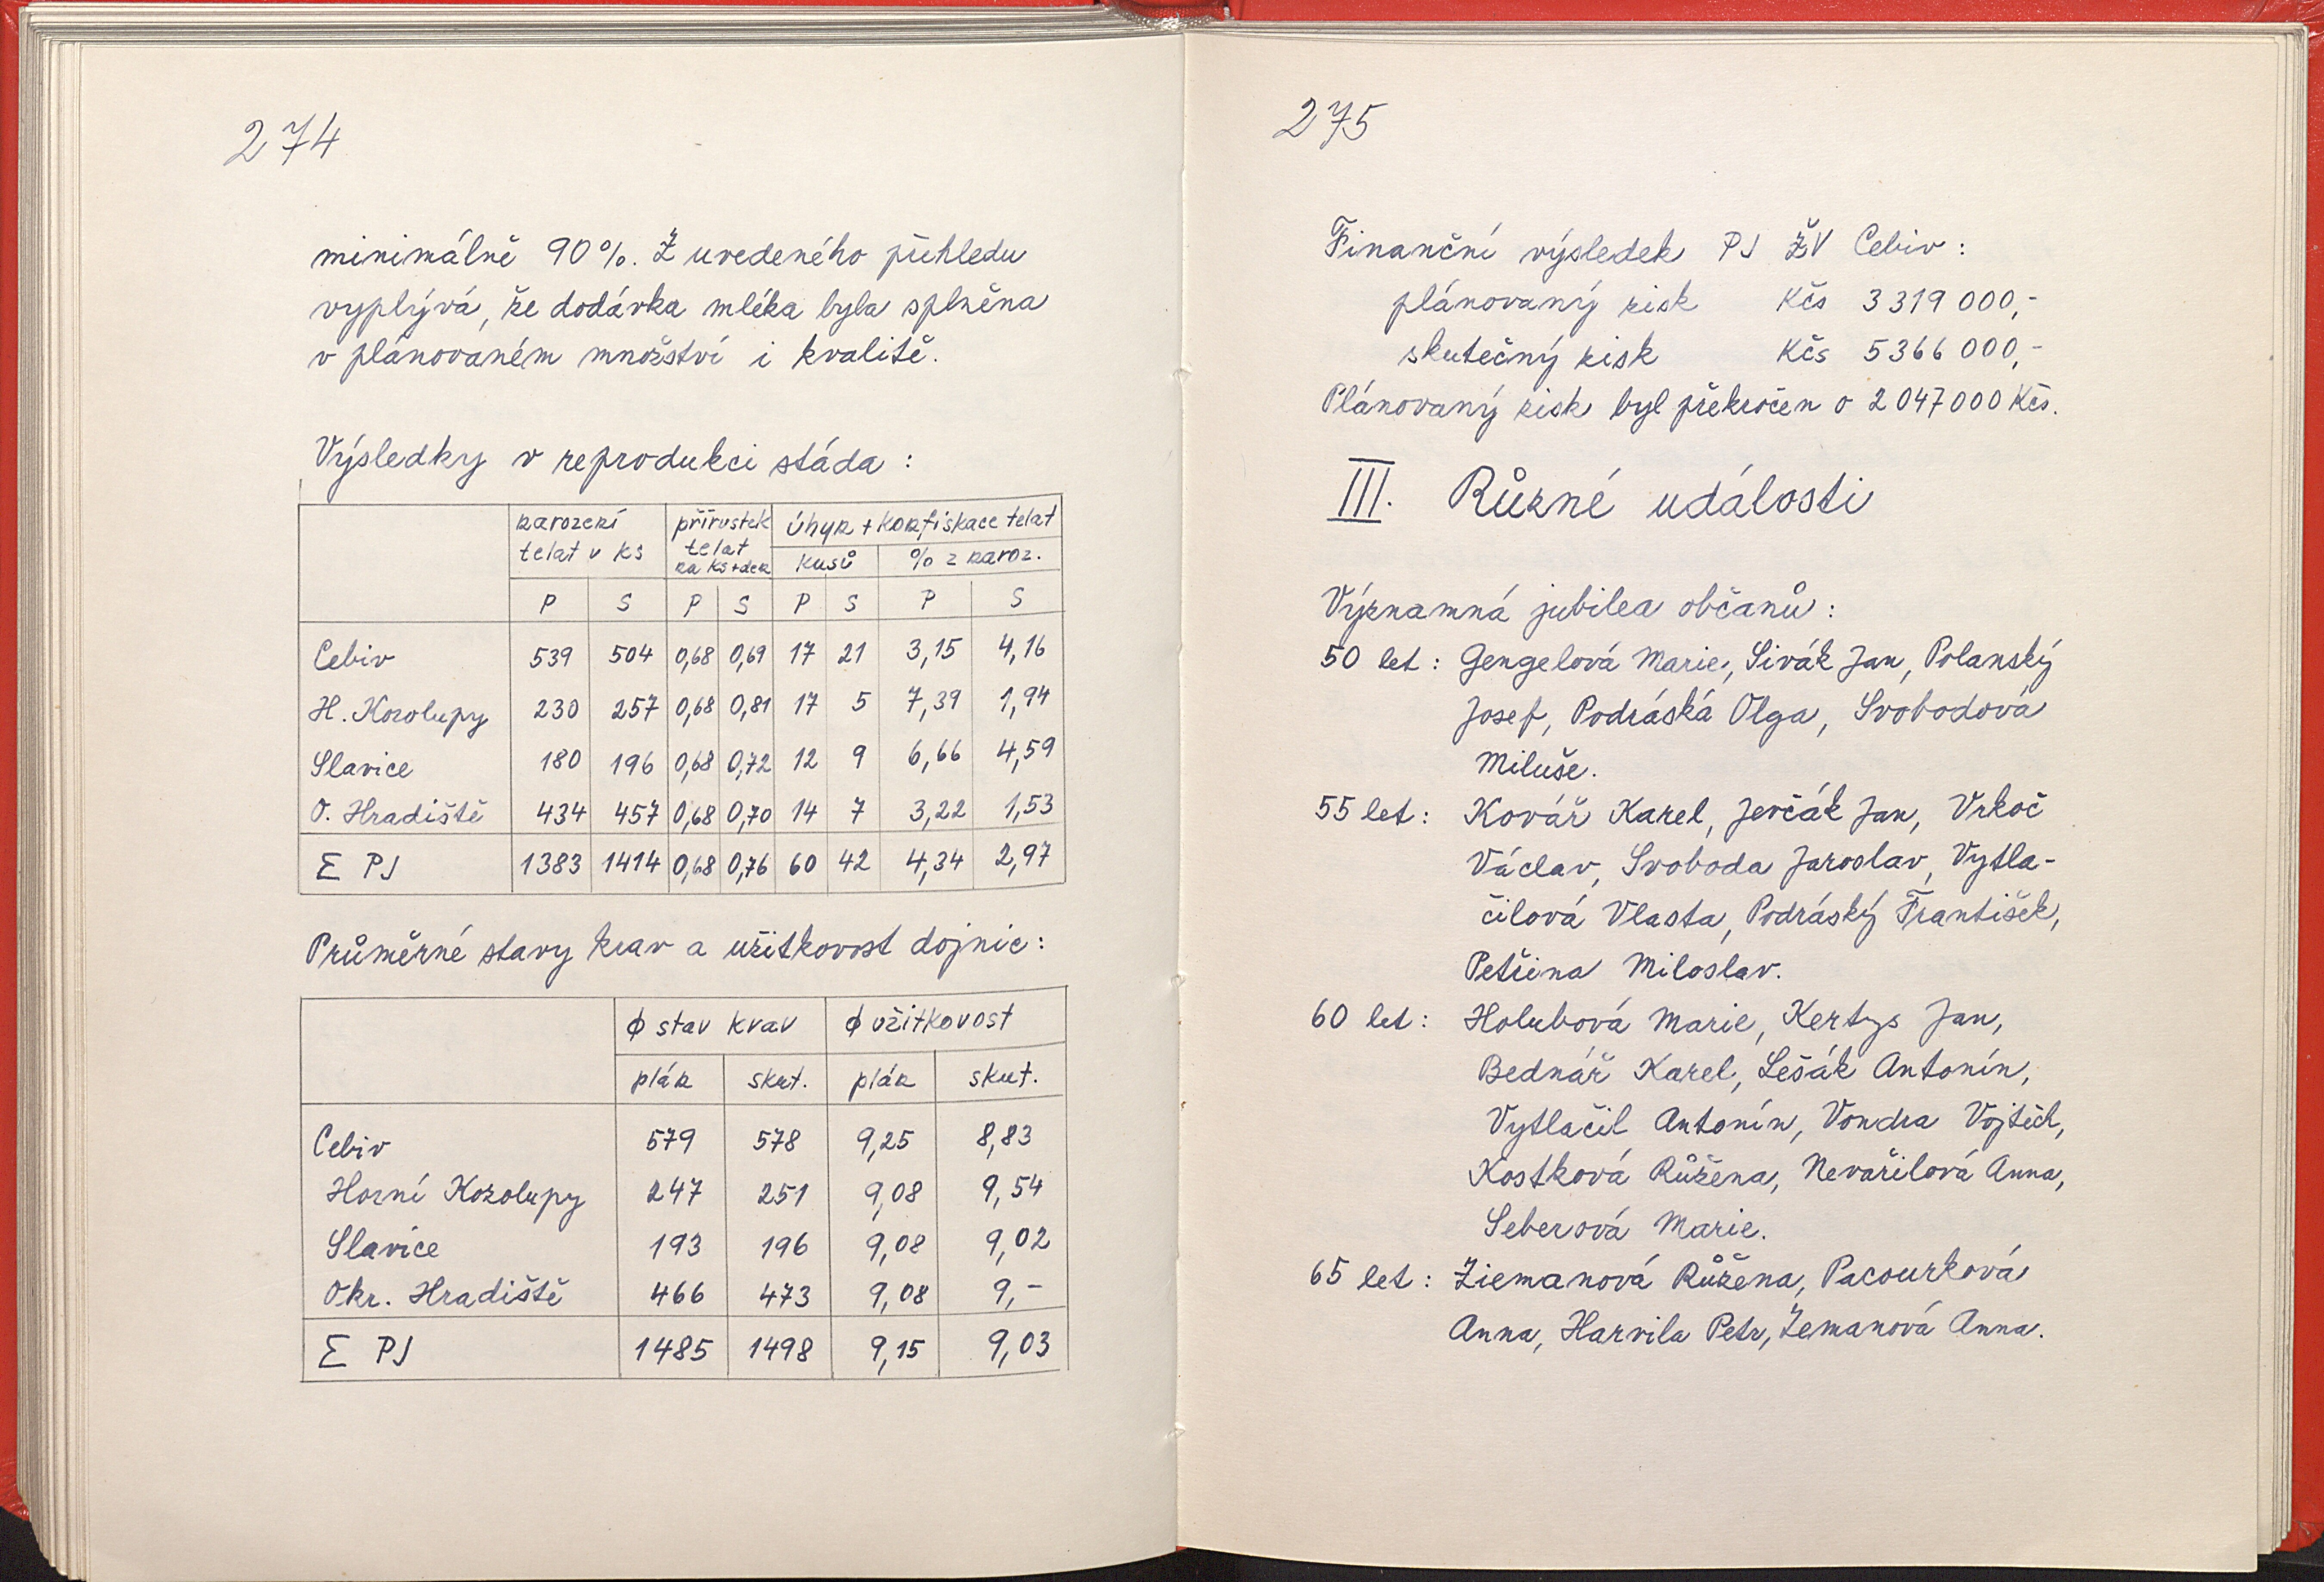 274
minimálně 90%. Z uvedeného přehledu
vyplývá, že dodávka mléka byla splněna
v plánovaném množství i kvalitě.
Výsledky v reprodukci stáda :
narození telat v ks | přírůstek telat na ks+den | úhyn + konfiskace telat
kusů | % z naroz.
P S P S P S P S
Cebiv 539 504 0,68 0,69 17 21 3,15 4,16
H. Kozolupy 230 257 0,68 0,81 17 5 7,39 1,94
Slavice 180 196 0,68 0,72 12 9 6,66 4,59
O. Hradiště 434 457 0,68 0,70 14 7 3,22 1,53
Σ PJ 1383 1414 0,68 0,76 60 42 4,34 2,97
Průměrné stavy krav a užitkovost dojnic :
ϕ stav krav ϕ užitkovost
plán skut. plán skut.
Cebiv 579 578 9,25 8,83
Horní Kozolupy 247 251 9,08 9,54
Slavice 193 196 9,08 9,02
Okr. Hradiště 466 473 9,08 9,-
Σ PJ 1485 1498 9,15 9,03
275
Finanční výsledek PJ ŽV Cebiv :
plánovaný zisk Kčs 3 319 000,-
skutečný zisk Kčs 5 366 000,-
Plánovaný zisk byl překročen o 2 047 000 Kčs.
III. Různé události
Významná jubilea občanů :
50 let : Gengelová Marie, Sivák Jan, Polanský
Josef, Podráská Olga, Svobodová
Miluše.
55 let : Kovář Karel, Jevčák Jan, Vrkoč
Václav, Svoboda Jaroslav, Vytla-
čilová Vlasta, Podráský František,
Petřina Miloslav.
60 let : Holubová Marie, Kertys Jan,
Bednář Karel, Lešák Antonín,
Vytlačil Antonín, Vondra Vojtěch,
Kostková Růžena, Nevařilová Anna,
Seberová Marie.
65 let : Ziemanová Růžena, Pacourková
Anna, Harvila Petr, Zemanová Anna.